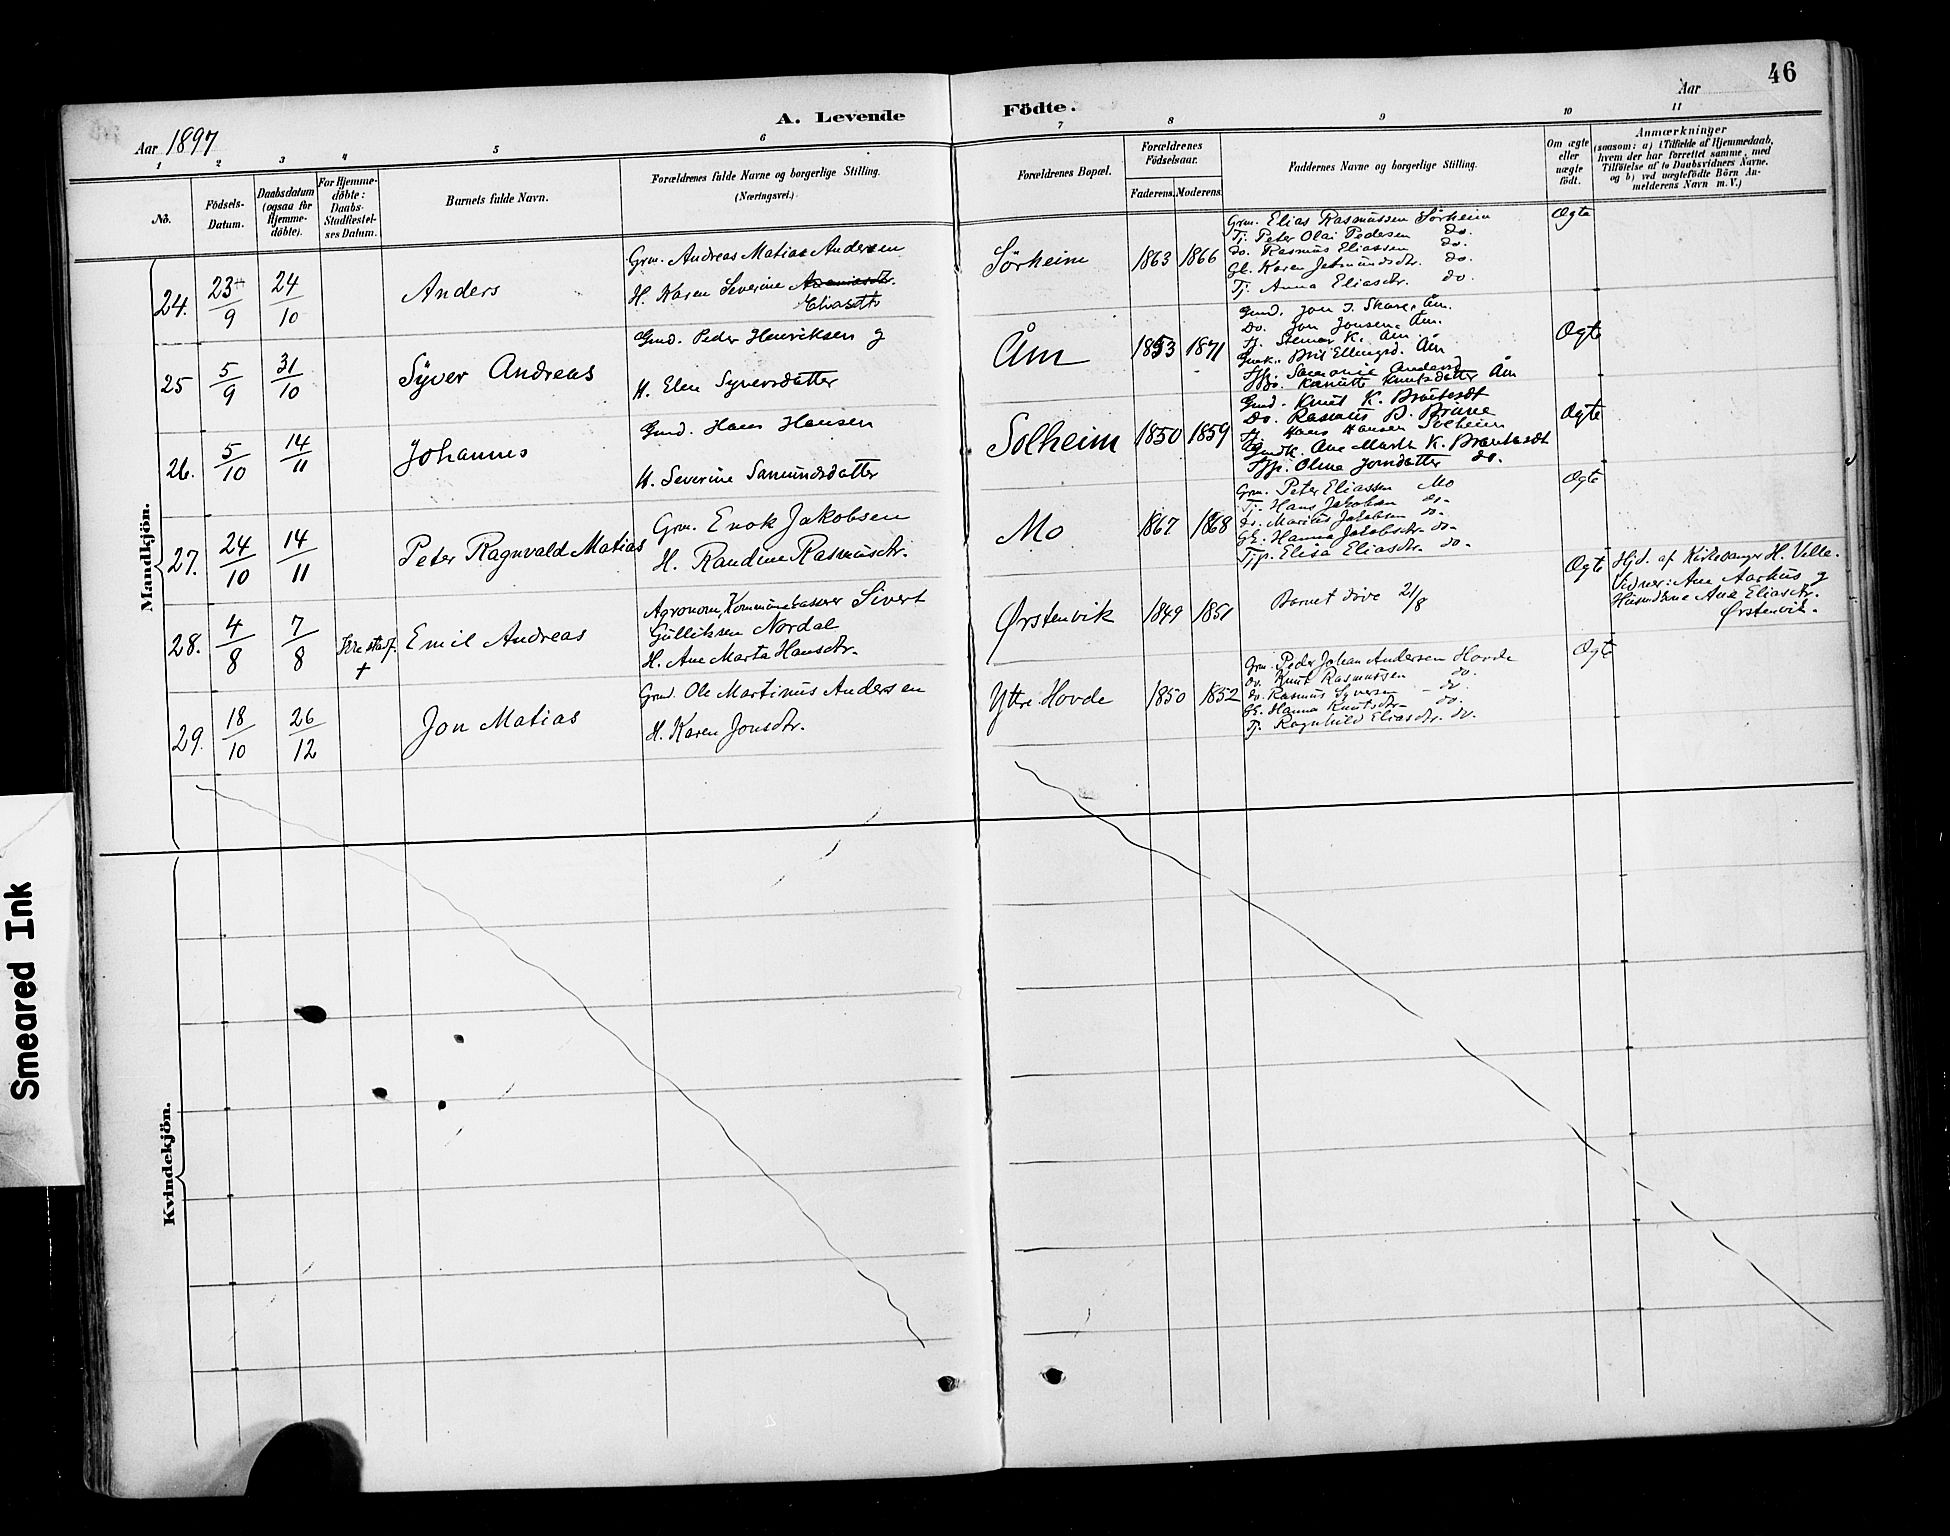 46
A. Levende Födte.
Aar 1897
Aar
1 2 3 4 5 6 7 8 9 10 11
No.
Födsels-
Datum.
Daabsdatum
(ogsaa for
Hjemme-
döbte).
For Hjemme-
döbte:
Daabs-
Stadfæstel-
ses Datum.
Barnets fulde Navn.
Forældrenes fulde Navne og borgerlige Stilling.
(Næringsvei.)
Forældrenes Bopæl.
Forældrenes
Födselsaar.
Faderens. Moderens.
Faddernes Navne og borgerlige Stilling.
Om ægte
eller
uægte
födt.
Anmærkninger
(saasom: a) i Tilfælde af Hjemmedaab,
hvem der har forrettet samme, med
Tilföielse af to Daabsvidners Navne,
og b) ved uægtefödte Börn An-
melderens Navn m. V.)
Mandkjön.
24. 23/9 24/10 Anders
Grm. Andreas Matias Andersen
H. Karen Severine
Eliasdtr
Sörheim 1863 1866
Grm. Elias Rasmussen Sörheim
Tj. Peter Olai Pedersen do.
do. Rasmus Eliassen do.
Gk. Karen Jetmundsdtr. do.
Tj. Anna Eliasdtr. do.
Ægte
25 5/9 31/10 Syver Andreas
Gmd. Peder Henriksen g
H. Elen Syversdatter
Åm 1853 1871
Gmd. Jon J. Skare, Åm.
Do. Jon Jonsen, Åm.
Tj. Steinar K. Åm
Gmk. Brit Ellingsd. Åm
do. Kanutte Knutsdatter Åm
Ægte
26. 5/10 14/11 Johannes
Gmd. Hans Hansen
H. Severine Samundsdatter
Solheim 1850 1859
Gmd. Knut K. Brautesdt
Do. Rasmus B. Brune
Tj. Hans Hansen Solheim
Gmdk. Ane Marta K. Brautasdt
Tjp. Oline Jonsdatter do.
Ægte
27. 24/10 14/11 Peter Ragnvald Matias
Grm. Enok Jakobsen
H. Randine Rasmusdtr.
Mo 1867 1868
Grm. Peter Eliassen Mo
Tj. Hans Jakobsen do-
do. Marius Jakobsen do-
Gk. Hanna Jakobsdtr. do-
Tjp. Elisa Eliasdtr. do-
Ægte
28. 4/8 7/8 Ikke stadf. + Emil Andreas
Agronom, Kommunekasserer Sivert
Gulliksen Nordal
H. Ane Marta Hansdtr.
Ørstenvik 1849 1851
Barnet döde 21/8
Ægte
Hjd. af Kirkesanger H. Velle.
Vidner: Ane Aarhus g
Husmderne Ane Eliasdtr.
Ørstenvik.
29. 18/10 26/12 Jon Matias
Grmd. Ole Martinus Andersen
H. Karen Jonsdtr.
Ytre Hovde 1850 1852
Grm. Peder Johan Andersen Hovde
do. Knut Rasmussen do.
do. Rasmus Syversen - do.
Gk. Hanna Knutsdtr- do.
Tj. Ragnhild Eliasdtr. do.
Ægte
Kvindekjön.
Smeared Ink